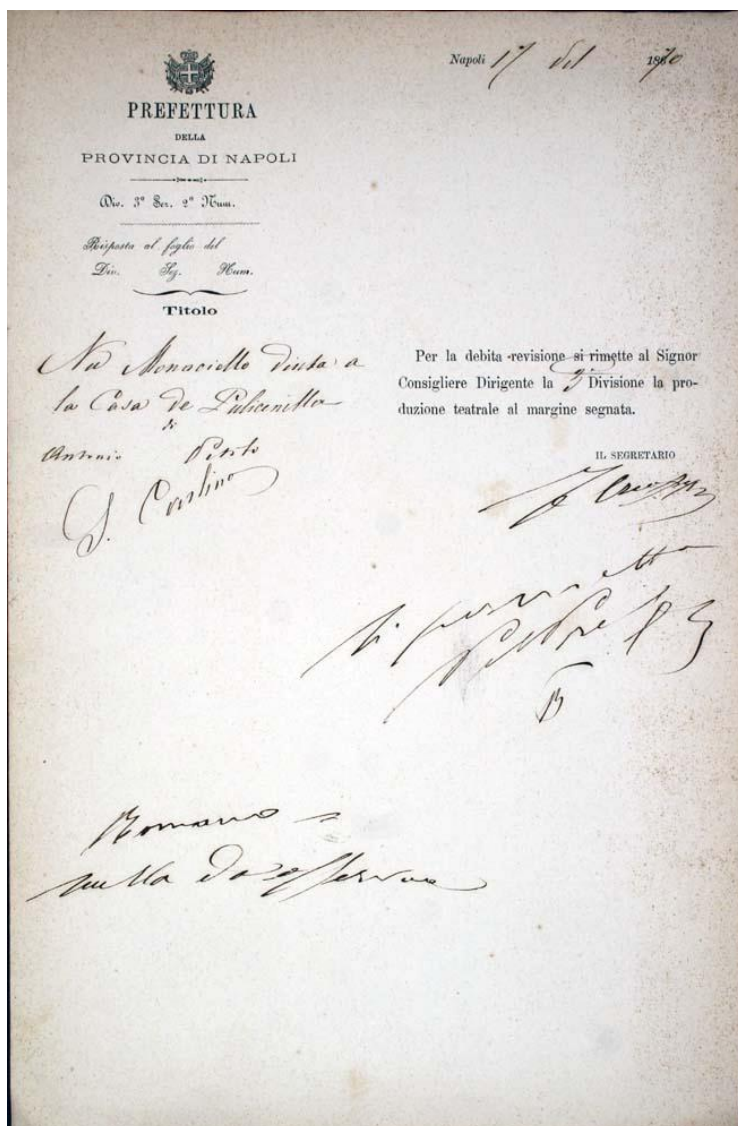 Napoli 17 1870
PREFETTURA
DELLA
PROVINCIA DI NAPOLI
Div. 3ª Sez. 2ª Num.
Risposta al foglio del
Div. Sez. Num.
Titolo
Nu Monaciello dinta a
la Casa de Pulicenella
di
Antonio Petito
S. Carlino
Per la debita revisione si rimette al Signor
Consigliere Dirigente la 3ª Divisione la pro-
duzione teatrale al margine segnata.
IL SEGRETARIO
Si permette
Romano
nulla da osservare